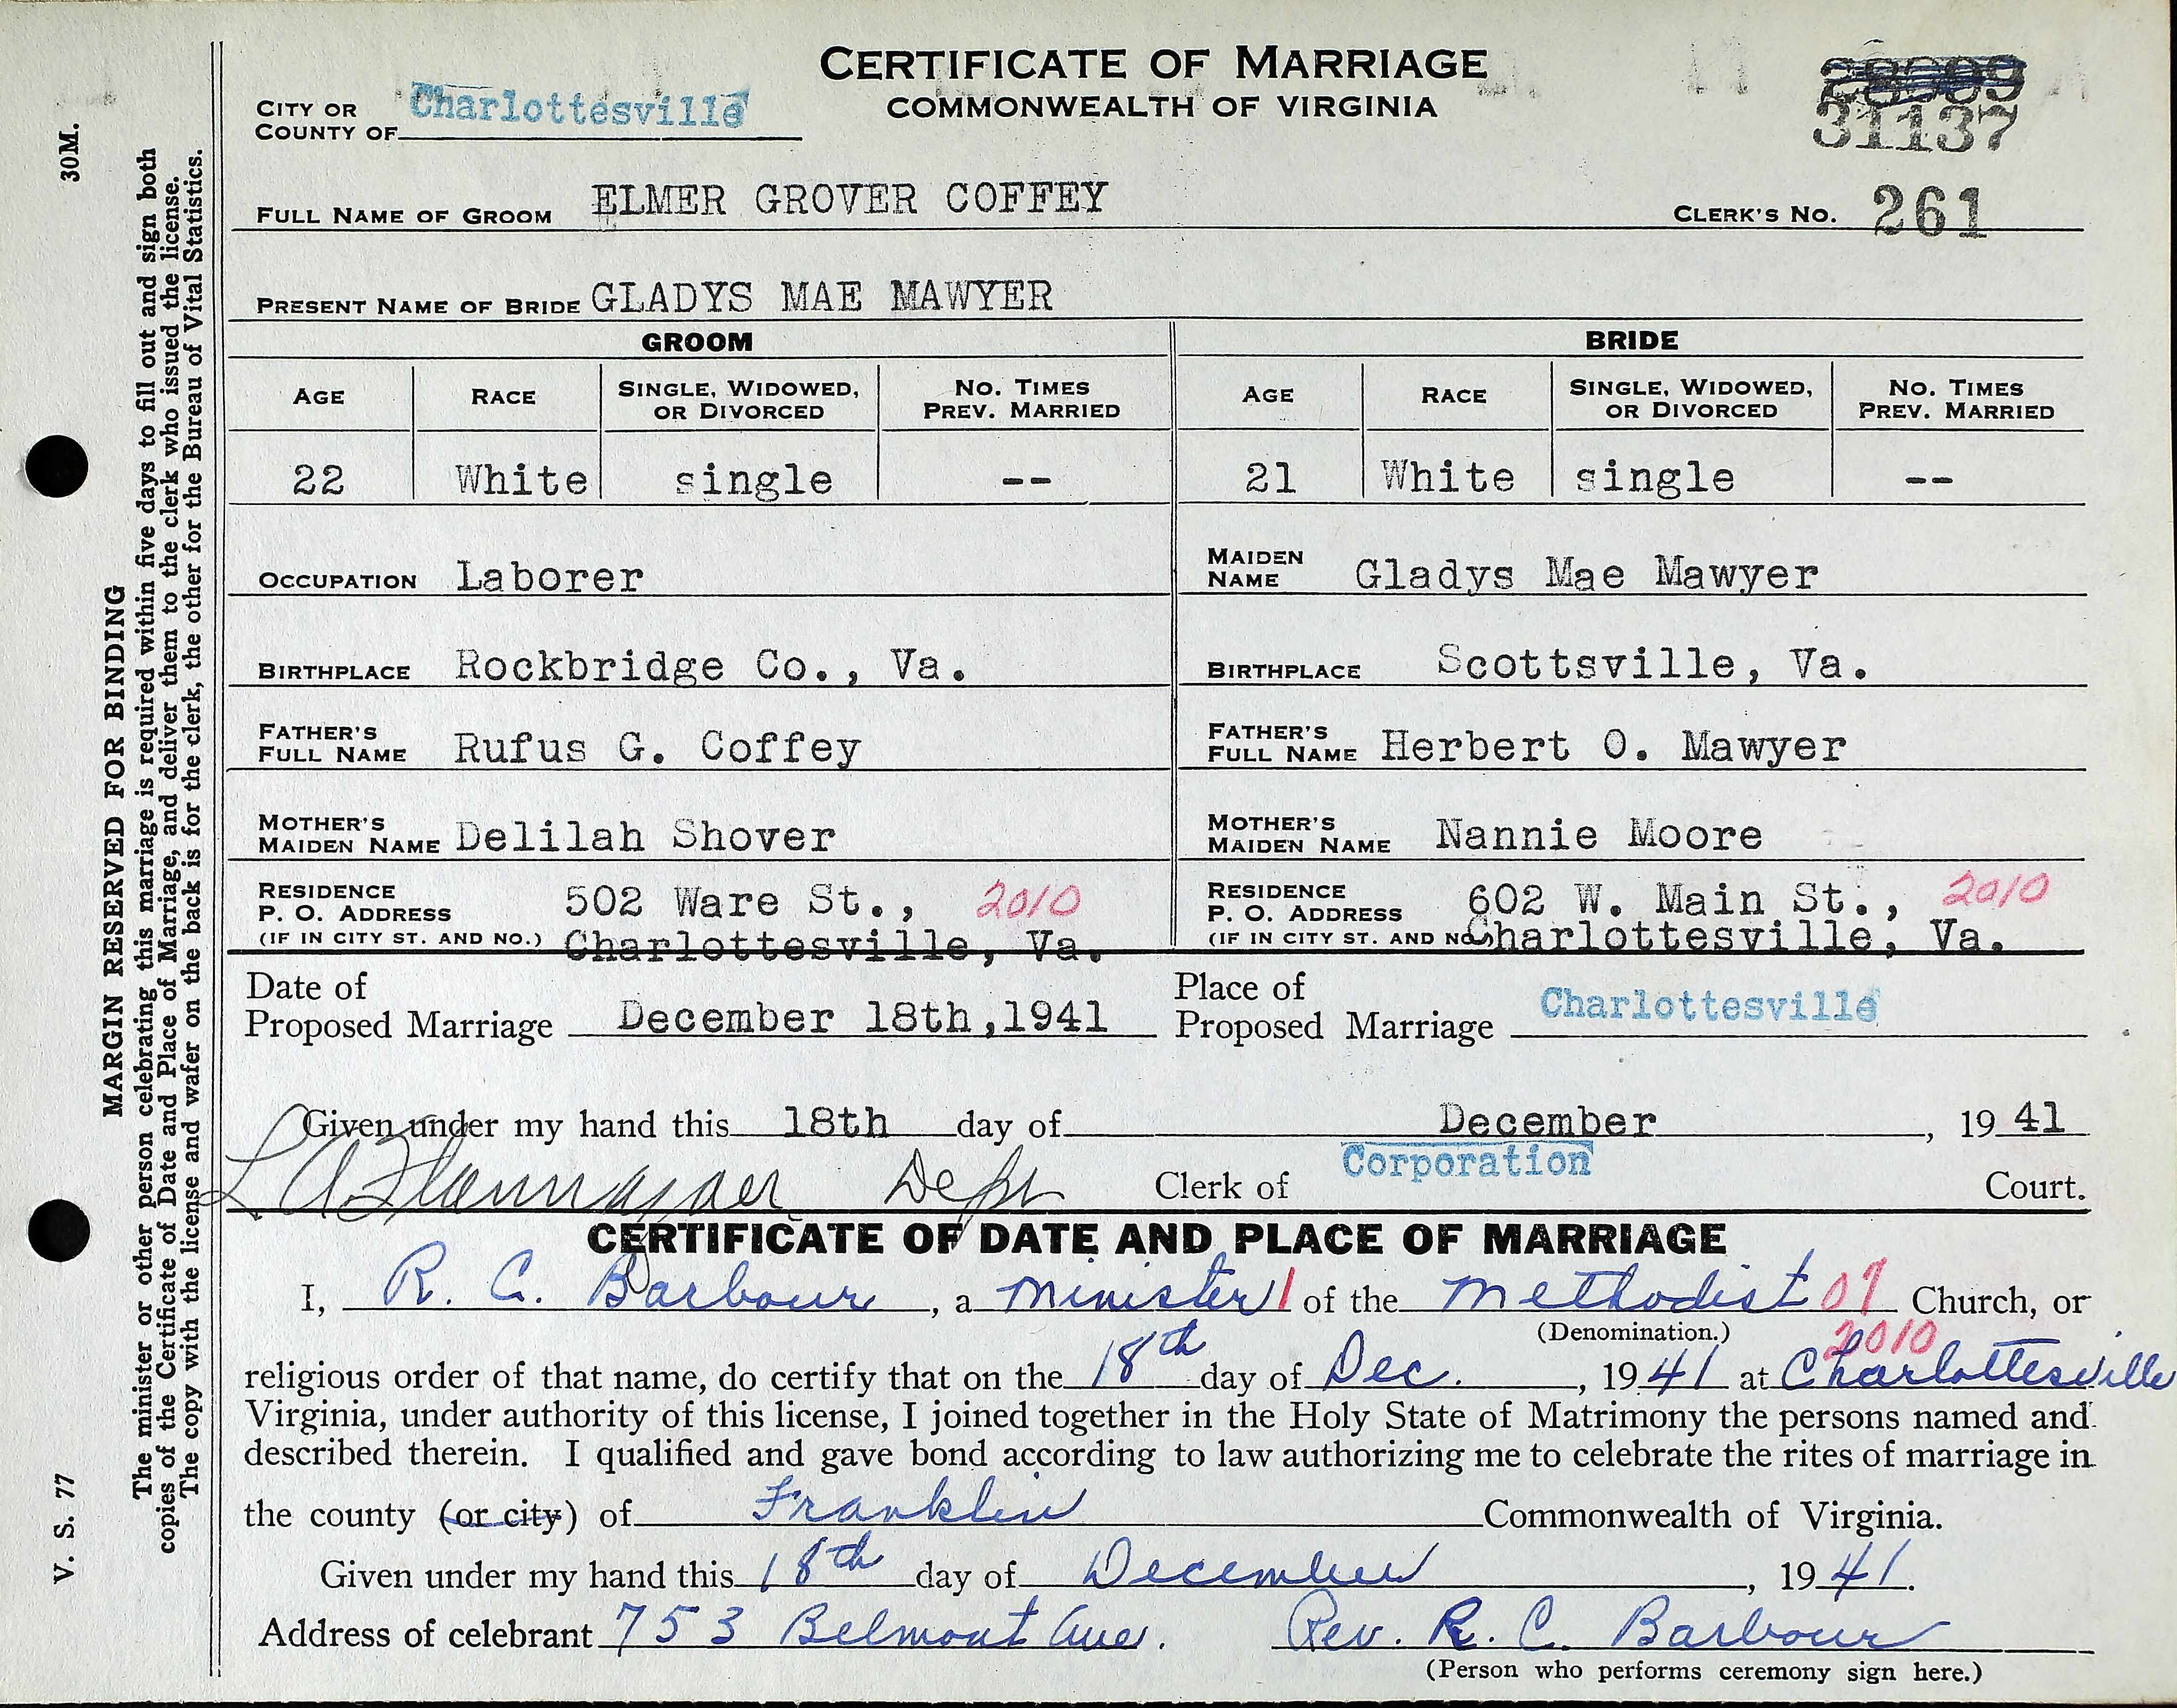 CERTIFICATE OF MARRIAGE
COMMONWEALTH OF VIRGINIA
CITY OR
COUNTY OF Charlottesville
31137
FULL NAME OF GROOM ELMER GROVER COFFEY
CLERK'S NO. 261
PRESENT NAME OF BRIDE GLADYS MAE MAWYER
GROOM
AGE RACE SINGLE, WIDOWED, OR DIVORCED NO. TIMES PREV. MARRIED
22 White single --
OCCUPATION Laborer
BIRTHPLACE Rockbridge Co., Va.
FATHER'S
FULL NAME Rufus G. Coffey
MOTHER'S
MAIDEN NAME Delilah Shover
RESIDENCE
P. O. ADDRESS 502 Ware St., 2010
(IF IN CITY ST. AND NO.) Charlottesville, Va.
BRIDE
AGE RACE SINGLE, WIDOWED, OR DIVORCED NO. TIMES PREV. MARRIED
21 White single --
MAIDEN
NAME Gladys Mae Mawyer
BIRTHPLACE Scottsville, Va.
FATHER'S
FULL NAME Herbert O. Mawyer
MOTHER'S
MAIDEN NAME Nannie Moore
RESIDENCE
P. O. ADDRESS 602 W. Main St., 2010
(IF IN CITY ST. AND NO.) Charlottesville, Va.
Date of
Proposed Marriage December 18th,1941
Place of
Proposed Marriage Charlottesville
Given under my hand this 18th day of December, 19 41
Clerk of Corporation Court.
CERTIFICATE OF DATE AND PLACE OF MARRIAGE
I, R. C. Barbour, a minister 1 of the Methodist 07 Church, or
(Denomination.)
2010
religious order of that name, do certify that on the 18th day of Dec., 1941 at Charlottesville
Virginia, under authority of this license, I joined together in the Holy State of Matrimony the persons named and
described therein. I qualified and gave bond according to law authorizing me to celebrate the rites of marriage in
the county (or city) of Franklin Commonwealth of Virginia.
Given under my hand this 18th day of December, 1941.
Address of celebrant 753 Belmont Ave. Rev. R. C. Barbour
(Person who performs ceremony sign here.)
V. S. 77 30M.
MARGIN RESERVED FOR BINDING
The minister or other person celebrating this marriage is required within five days to fill out and sign both
copies of the Certificate of Date and Place of Marriage, and deliver them to the clerk who issued the license.
The copy with the license and wafer on the back is for the clerk, the other for the Bureau of Vital Statistics.